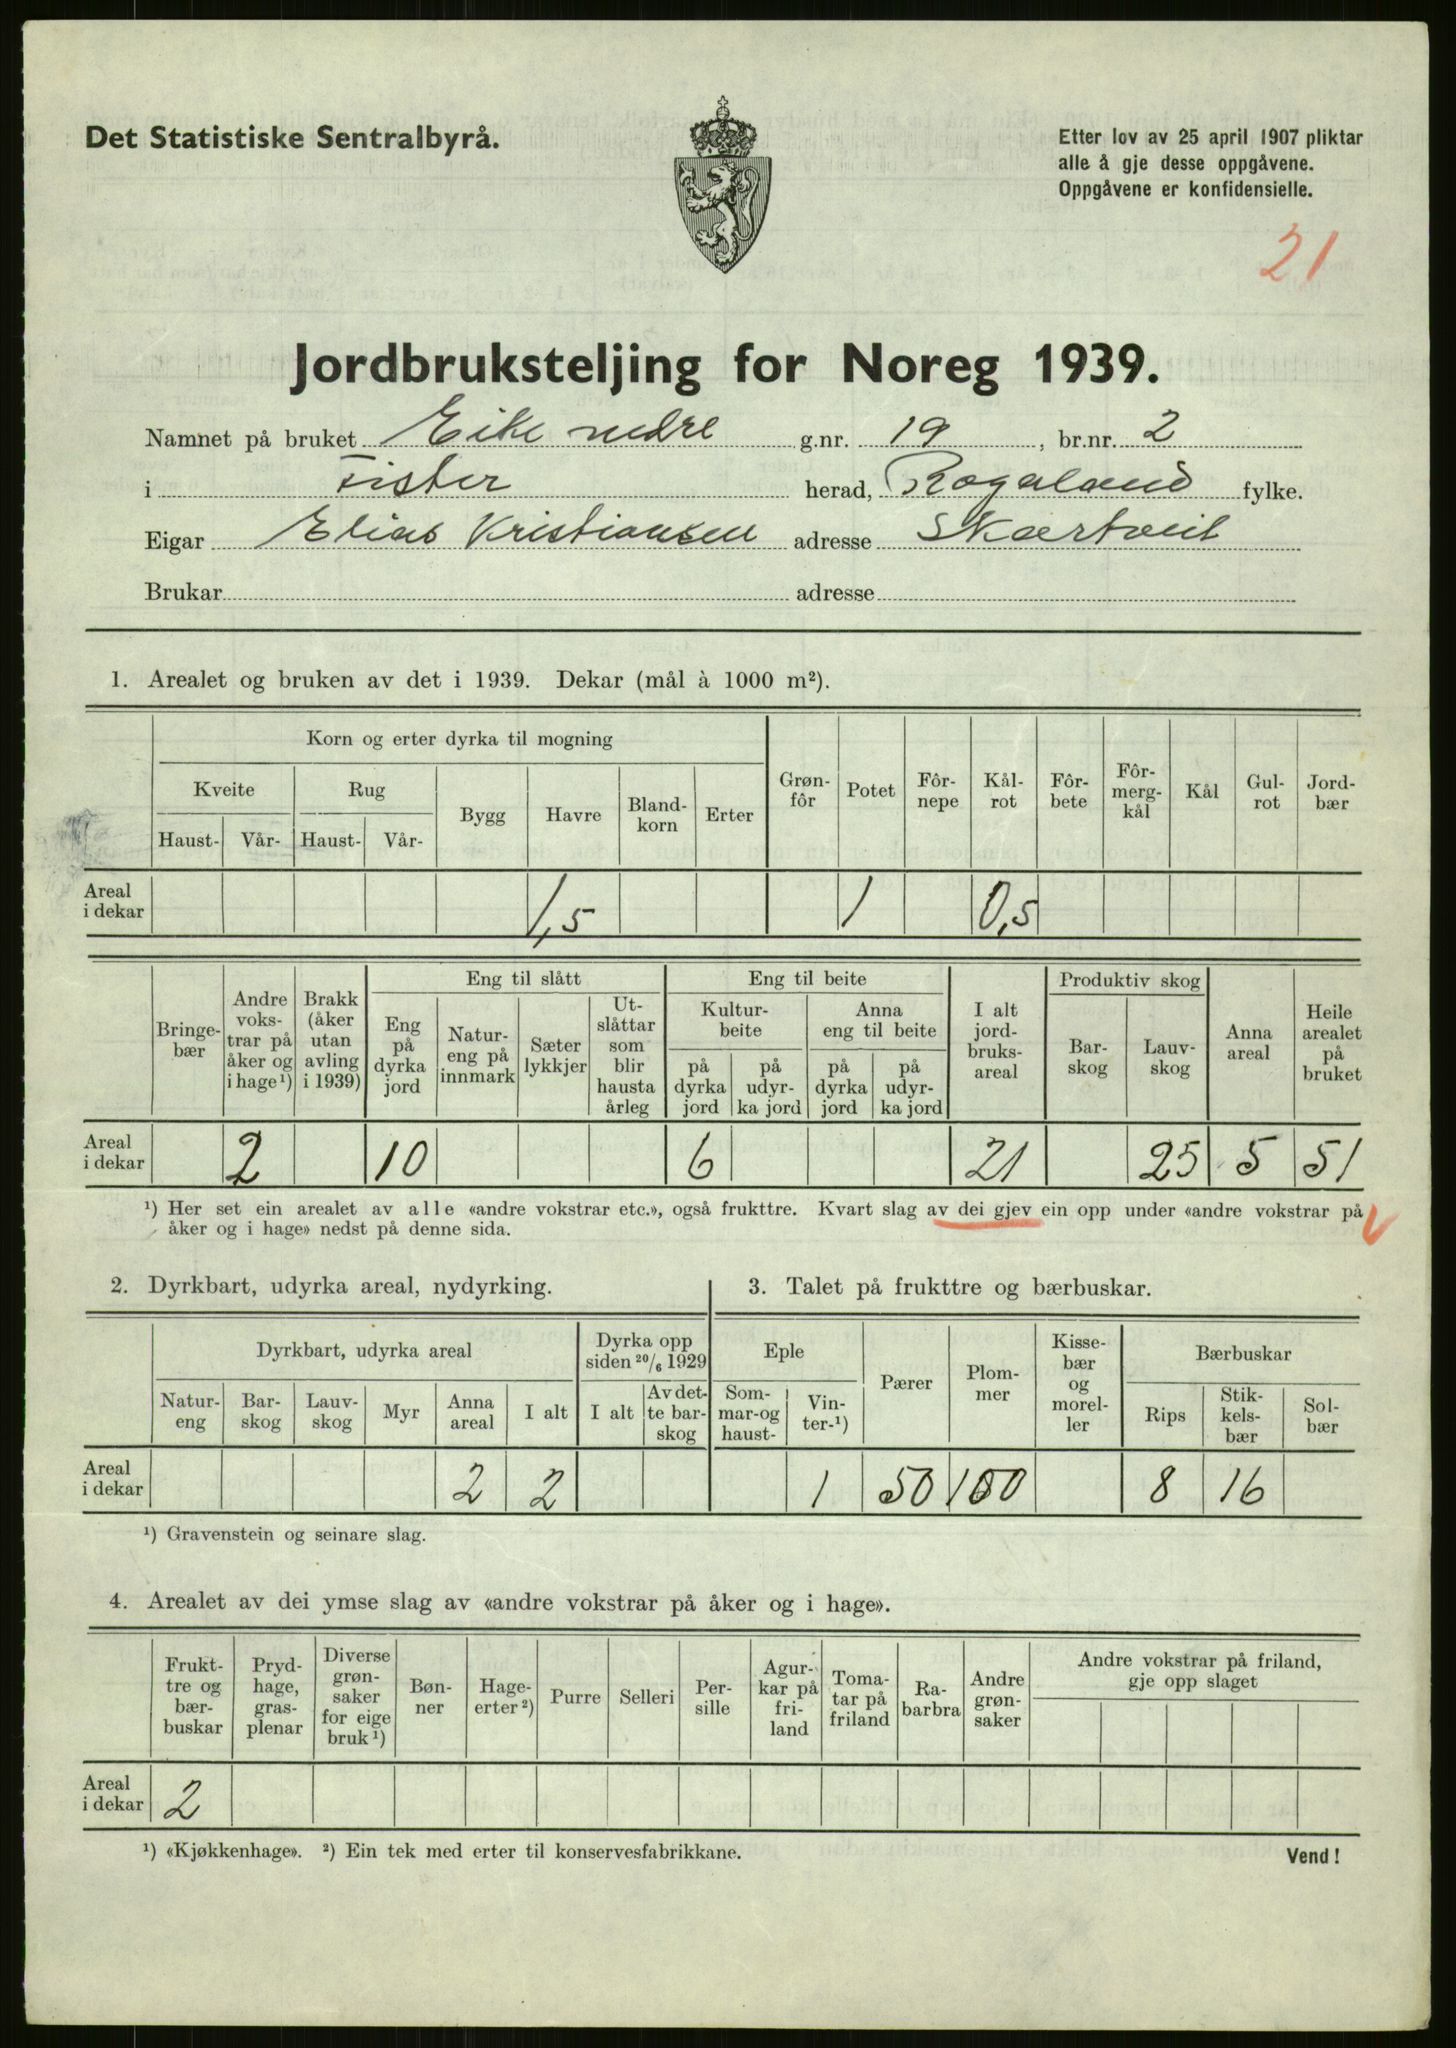 Det Statistiske Sentralbyrå.
Etter lov av 25 april 1907 pliktar
alle å gje desse oppgåvene.
Oppgåvene er konfidensielle.
21
Jordbruksteljing for Noreg 1939.
Namnet på bruket Eike nedre g.nr. 19, br.nr. 2
i Fister herad, Rogaland fylke.
Eigar Elias Kristiansen adresse Skartveit
Brukar adresse
1. Arealet og bruken av det i 1939. Dekar (mål à 1000 m²).
Korn og erter dyrka til mogning
Kveite Rug
Haust- Vår- Haust- Vår- Bygg Havre Bland-korn Erter Grøn-fôr Potet Fôr-nepe Kål-rot Fôr-bete Fôr-merg-kål Kål Gul-rot Jord-bær
Areal
i dekar 1,5 1 0,5
Eng til slått Eng til beite Produktiv skog
Kultur-beite Anna eng til beite
Bringe-bær Andre voks-trar på åker og i hage¹) Brakk (åker utan avling i 1939) Eng på dyrka jord Natur-eng på innmark Sæter lykkjer Ut-slåttar som blir hausta årleg på dyrka jord på udyr-ka jord på dyrka jord på udyr-ka jord I alt jord-bruks-areal Bar-skog Lauv-skog Anna areal Heile arealet på bruket
Areal
i dekar 2 10 6 21 25 5 51
¹) Her set ein arealet av alle «andre vokstrar etc.», også frukttre. Kvart slag av dei gjev ein opp under «andre vokstrar på
åker og i hage» nedst på denne sida.
2. Dyrkbart, udyrka areal, nydyrking.
Dyrkbart, udyrka areal Dyrka opp siden 20/6 1929
Natur-eng Bar-skog Lauv-skog Myr Anna areal I alt I alt Av det-te bar-skog
Areal
i dekar 2 2
3. Talet på frukttre og bærbuskar.
Eple Bærbuskar
Som-mar-og haust- Vin-ter-¹) Pærer Plom-mer Kisse-bær og morel-ler Rips Stik-kels-bær Sol-bær
1 50 100 8 16
¹) Gravenstein og seinare slag.
4. Arealet av dei ymse slag av «andre vokstrar på åker og i hage».
Frukt-tre og bær-buskar Pryd-hage, gras-plenar Diverse grøn-saker for eige bruk¹) Bøn-ner Hage-erter²) Purre Selleri Per-sille Agur-kar på fri-land Toma-tar på friland Ra-barbra Andre grøn-saker Andre vokstrar på friland, gje opp slaget
Areal
i dekar 2
¹) «Kjøkkenhage». ²) Ein tek med erter til konservesfabrikkane.
Vend!